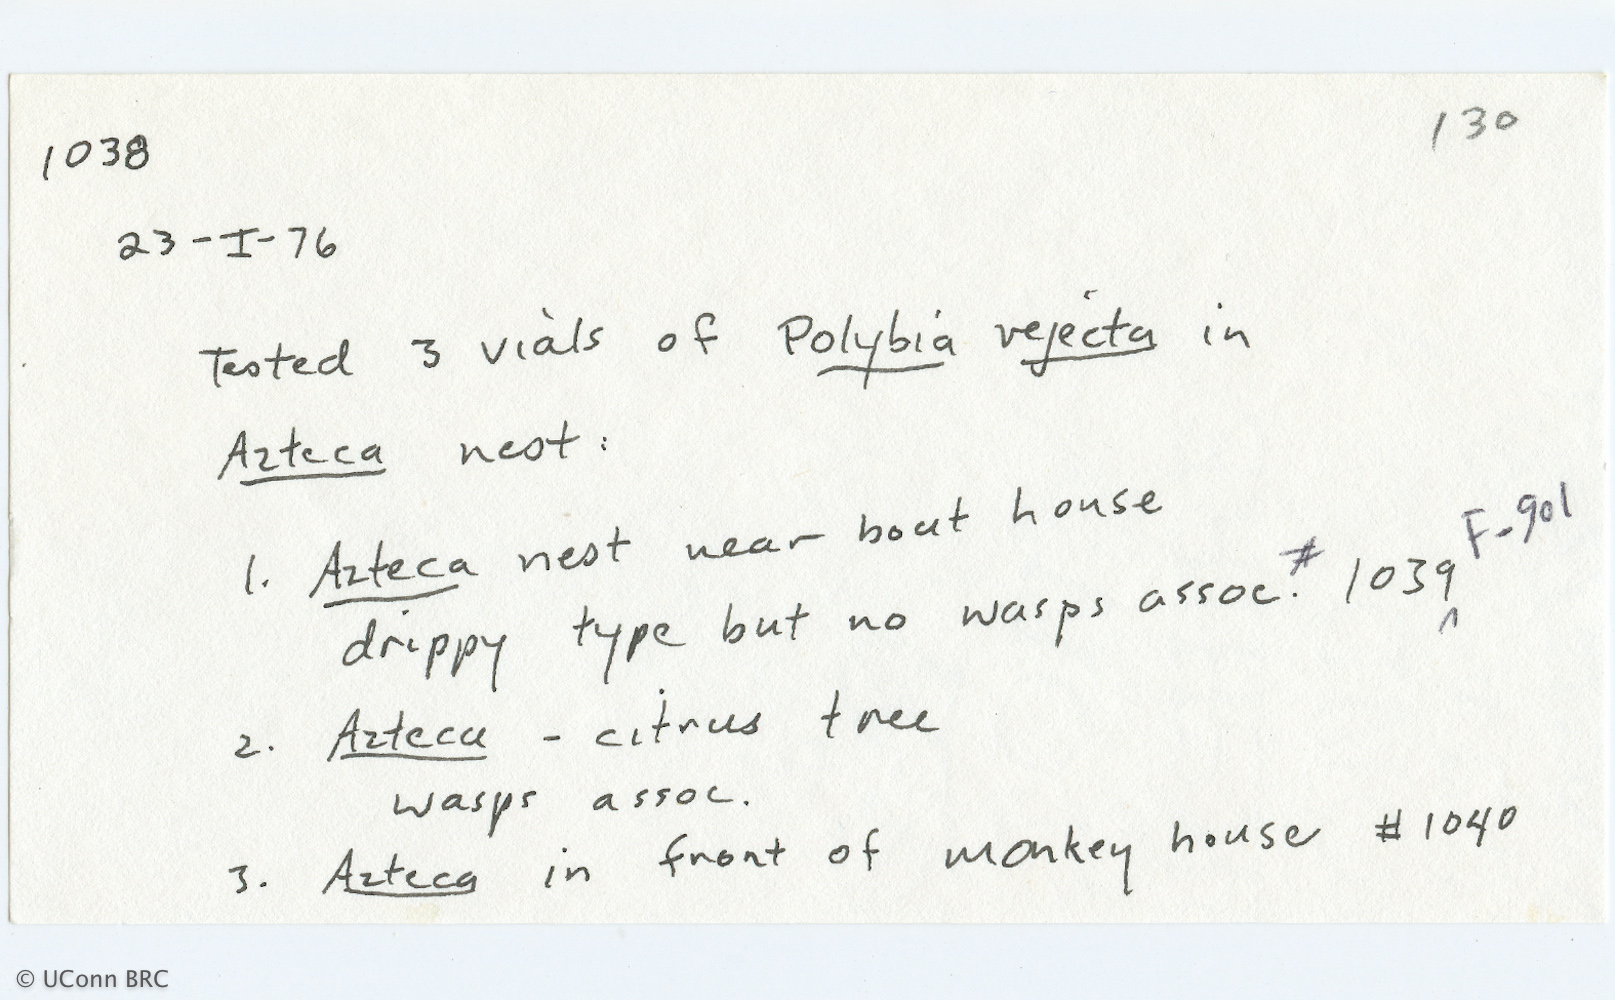 1038
130
23-I-76
Tested 3 vials of Polybia rejecta in
Azteca nest:
1. Azteca nest near boat house
drippy type but no wasps assoc. # 1039 F-901
2. Azteca - citrus tree
wasps assoc.
3. Azteca in front of monkey house # 1040
© UConn BRC